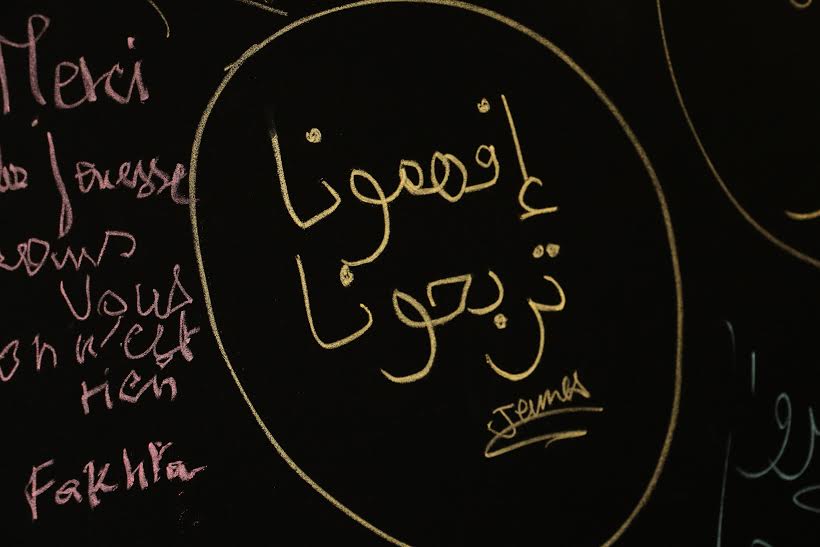 Merci
Jeunesse
Vous
on n'est
rien
Fakhra
إفهمونا
تربحونا
Jeunes